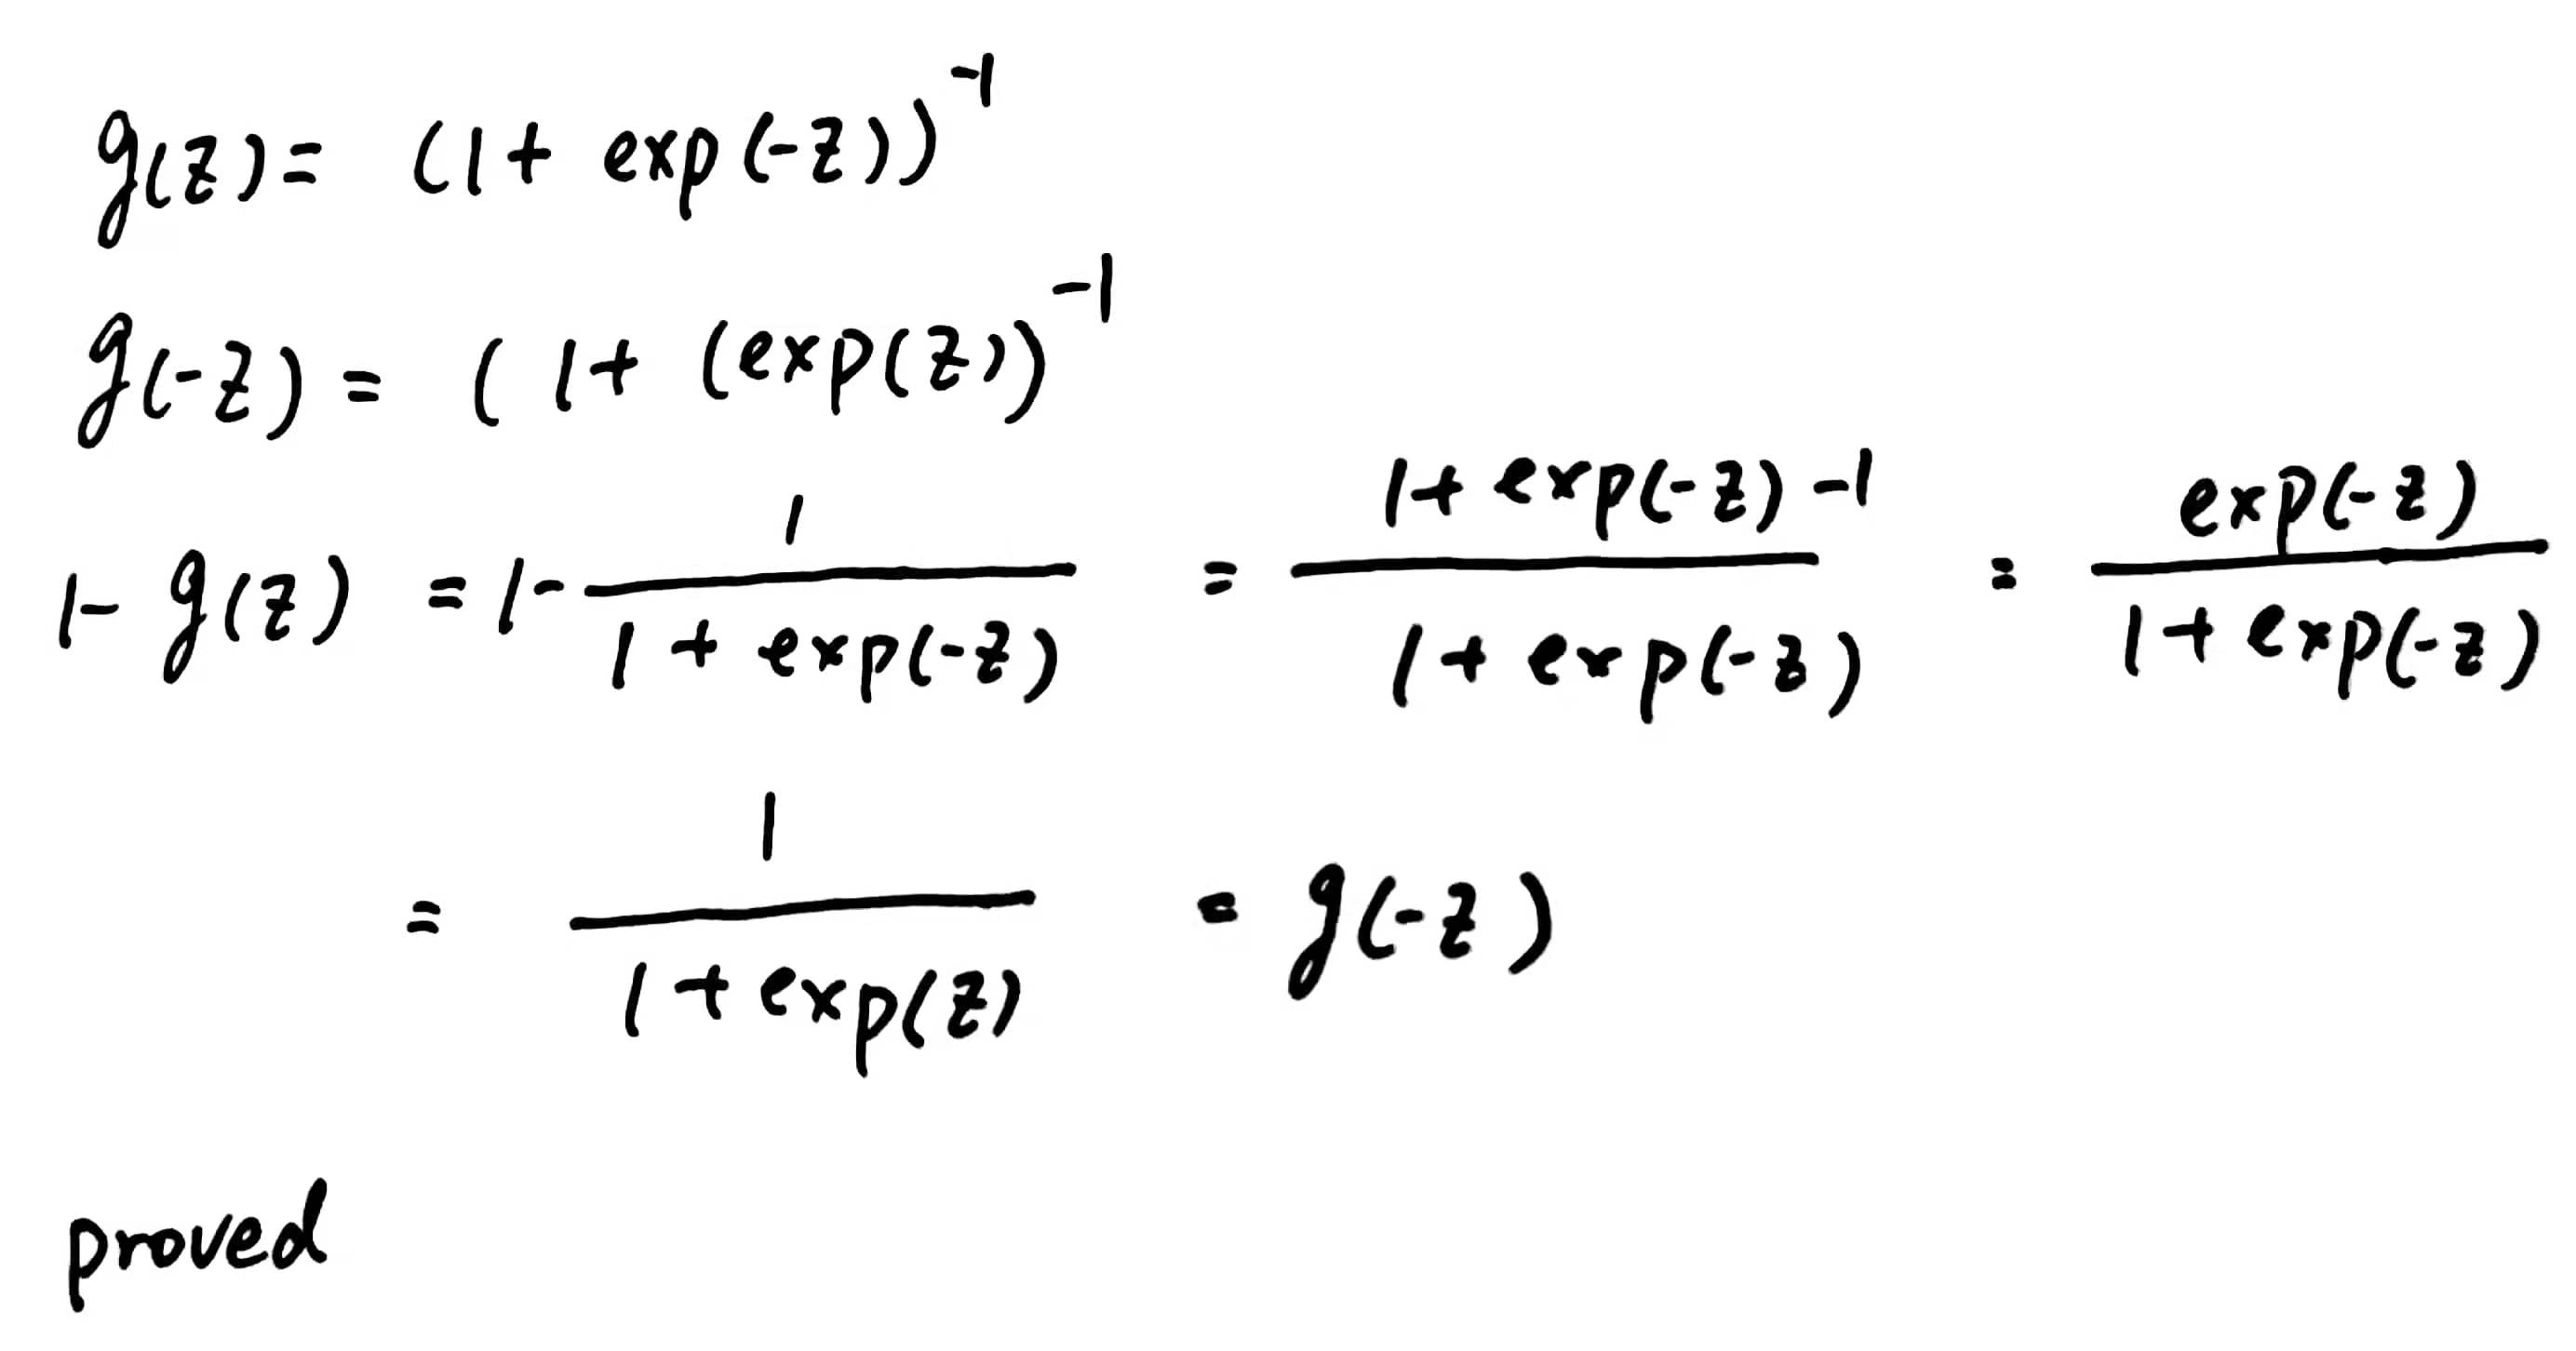 g(z) = (1 + exp(-z))^{-1}
g(-z) = ( 1 + (exp(z))^{-1}
1 - g(z) = 1 - \frac{1}{1 + exp(-z)} = \frac{1 + exp(-z) - 1}{1 + exp(-z)} = \frac{exp(-z)}{1 + exp(-z)}
= \frac{1}{1 + exp(z)} = g(-z)
proved